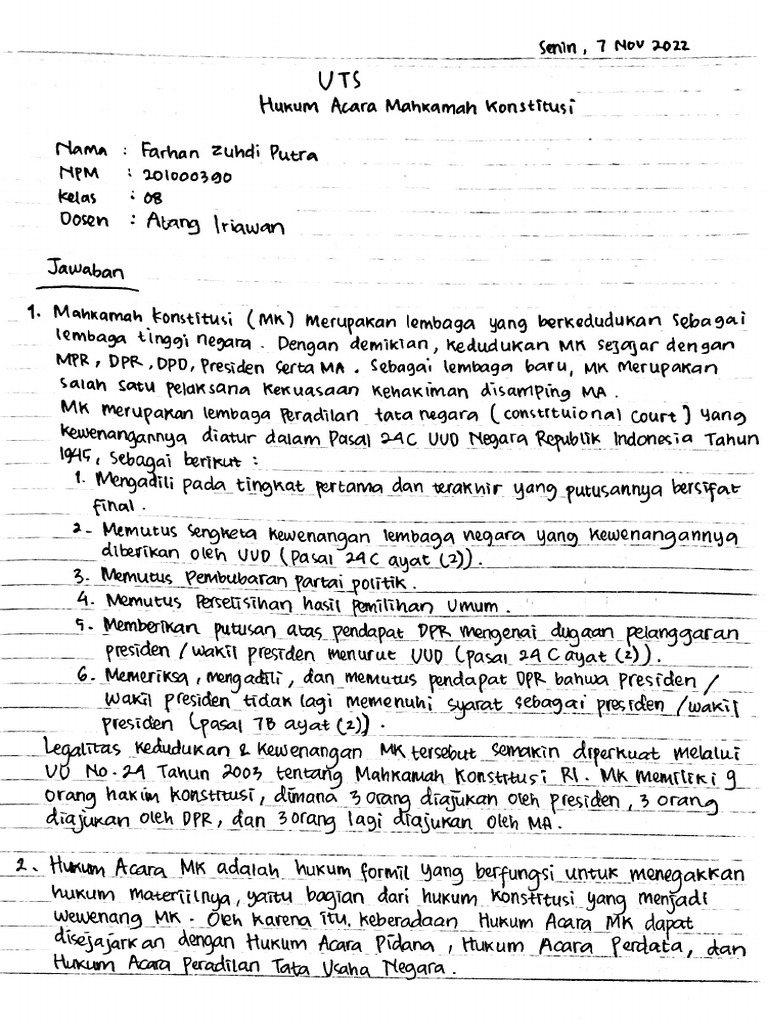 Senin, 7 Nov 2022
UTS
Hukum Acara Mahkamah Konstitusi
Nama : Farhan Zuhdi Putra
NPM : 201000390
Kelas : 08
Dosen : Atang Iriawan
Jawaban
1. Mahkamah Konstitusi (MK) merupakan lembaga yang berkedudukan sebagai
lembaga tinggi negara. Dengan demikian, kedudukan MK sejajar dengan
MPR, DPR, DPD, Presiden serta MA. Sebagai lembaga baru, MK merupakan
salah satu pelaksana kekuasaan kehakiman disamping MA.
MK merupakan lembaga peradilan tata negara (constrtuional court) yang
kewenangannya diatur dalam Pasal 24C UUD Negara Republik Indonesia Tahun
1945, sebagai berikut :
1. Mengadili pada tingkat pertama dan terakhir yang putusannya bersifat
final.
2. Memutus sengketa kewenangan lembaga negara yang kewenangannya
diberikan oleh UUD (Pasal 24C ayat (2)).
3. Memutus Pembubaran partai politik.
4. Memutus Perselisihan hasil pemilihan Umum.
5. Memberikan putusan atas pendapat DPR mengenai dugaan pelanggaran
presiden / wakil presiden menurut UUD (pasal 24C ayat (2)).
6. Memeriksa, mengadili, dan memutus pendapat DPR bahwa presiden /
wakil presiden tidak lagi memenuhi syarat sebagai presiden / wakil
presiden (pasal 7B ayat (2)).
Legalitas kedudukan & kewenangan MK tersebut semakin diperkuat melalui
UU No. 24 Tahun 2003 tentang Mahkamah Konstitusi RI. MK memiliki 9
orang hakim konstitusi, dimana 3 orang diajukan oleh presiden, 3 orang
diajukan oleh DPR, dan 3 orang lagi diajukan oleh MA.
2. Hukum Acara MK adalah hukum formil yang berfungsi untuk menegakkan
hukum materiilnya, yaitu bagian dari hukum konstitusi yang menjadi
wewenang MK. Oleh karena itu, keberadaan Hukum Acara MK dapat
disejajarkan dengan Hukum Acara Pidana, Hukum Acara Perdata, dan
Hukum Acara Peradilan Tata Usaha Negara.